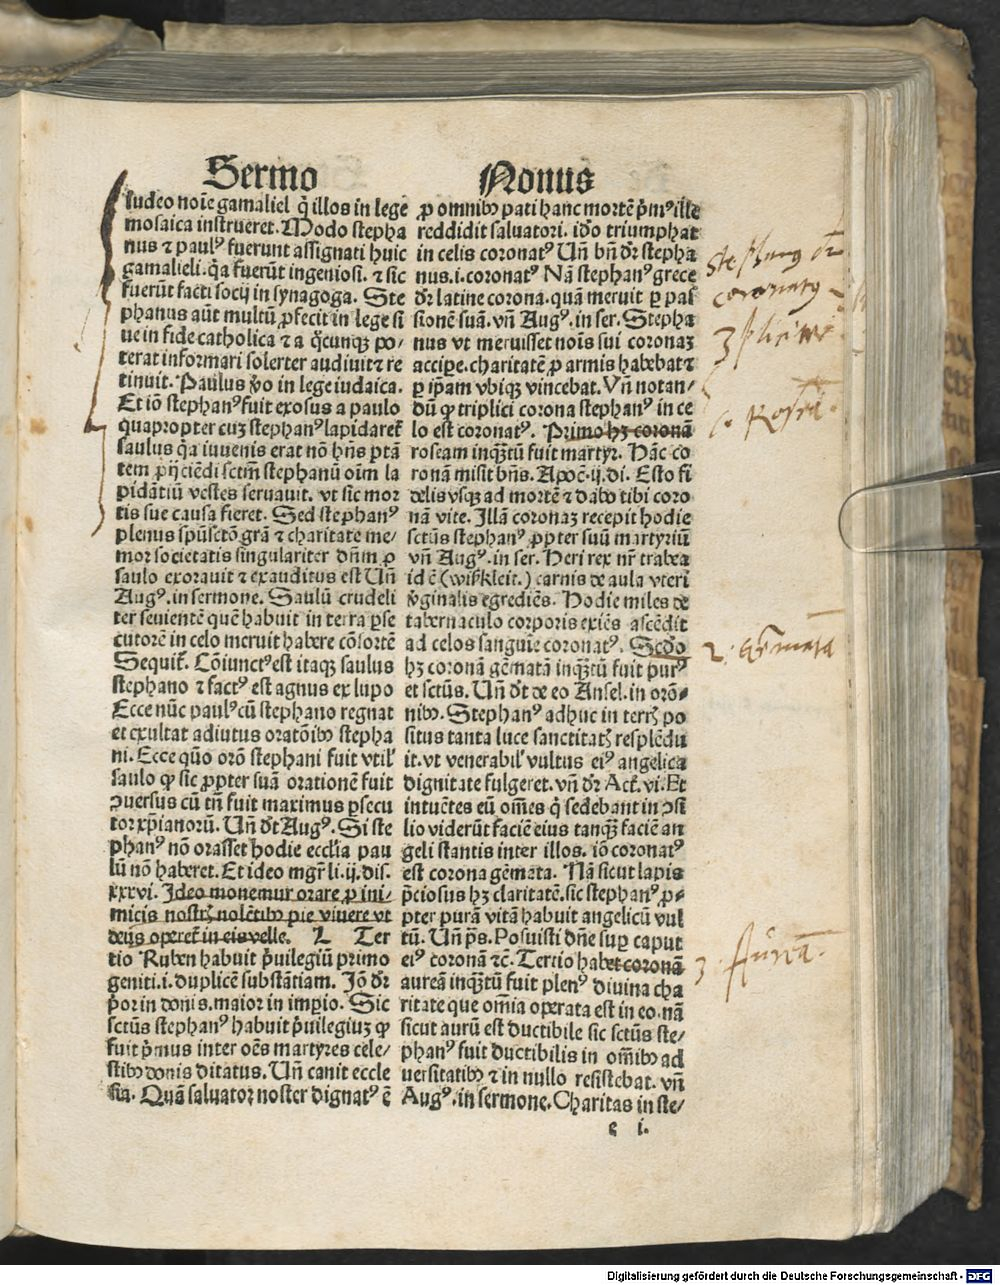 Sermo
Iudeo noīe gamaliel q̄ illos in lege
mosaica instrueret. Modo stepha
nus ⁊ paulꝰ fuerunt assignati huic
gamalieli. q̄a fuerūt ingeniosi. ⁊ sic
fuerūt facti socij in synagoga. Ste
phanus aūt multū ꝓfecit in lege si
ue in fide catholica ⁊ a q̄cunqꝫ po⸗
terat informari solerter audiuit ⁊ re
tinuit. Paulus v̄o in lege iudaica.
Et iō stephanꝰ fuit exosus a paulo
quapropter cuꝫ stephanꝰ lapidaret̄
saulus q̄a iuuenis erat nō hn̄s ptā
tem ꝓijciēdi sctm̄ stephanū oīm la
pidātiū vestes seruauit. vt sic mor
tis sue causa fieret. Sed stephanꝰ
plenus spūsctō grā ⁊ charitate me⸗
mor societatis singulariter dn̄m ꝓ
saulo exorauit ⁊ exauditus est Un̄
Augꝰ. in sermone. Saulū crudeli
ter seuientē quē habuit in terra ꝑse
cutorē in celo meruit habere cōsortē
Sequit̄. Cōiunctꝰ est itaqꝫ saulus
stephano ⁊ factꝰ est agnus ex lupo
Ecce nūc paulꝰ cū stephano regnat
et exultat adiutus oratōibꝰ stepha
ni. Ecce quō orō stephani fuit vtilꝭ
saulo qꝫ sic ꝓpter suā orationē fuit
ꝯuersus cū tn̄ fuit maximus ꝑsecu
tor xp̄ianorū. Un̄ dt̄ Augꝰ. Si ste
phanꝰ nō orasset hodie eccl̄ia pau
lū nō haberet. Et ideo mgr̄ li. ij. dis.
xxxvi. Ideo monemur orare ꝓ ini⸗
micis nostrꝭ nolētibꝰ pie viuere vt
deus operet̄ in eis velle. L Ter
tio Ruben habuit p̄uilegiū primo
geniti. i. duplicē substātiam. Iō dr̄
p̄or in donis. maior in imꝑio. Sic
sctūs stephanꝰ habuit p̄uilegiuꝫ qꝫ
fuit p̄mus inter oēs martyres cele⸗
stibꝰ donis ditatus. Un̄ canit eccle
sia. Quā saluator noster dignatꝰ ē
Nonus
ꝓ omnibꝰ pati hanc mortē p̄mꝰ ille
reddidit saluatori. iđo triumphat
in celis coronatꝰ Un̄ bn̄ dr̄ stepha
nus. i. coronatꝰ Nā stephanꝰ grece
dr̄ latine corona. quā meruit ꝑ pas
sionē suā. vn̄ Augꝰ. in ser. Stepha
nus vt meruisset noīs sui coronaꝫ
accipe. charitatē ꝓ armis habebat ⁊
ꝑ ip̄am vbiqꝫ vincebat. Un̄ notan⸗
dū qꝫ triplici corona stephanꝰ in ce
lo est coronatꝰ. Primo hꝫ coronā
roseam inqꝫtū fuit martyr. Hāc co
ronā misit bn̄s. Apoc̄. ij. di. Esto fi
delis vsqꝫ ad mortē ⁊ dabo tibi coro
nā vite. Illā coronaꝫ recepit hodie
sctūs stephanꝰ ꝓpter suū martyriū
vn̄ Augꝰ. in ser. Heri rex nr̄ trabea
id ē (wißkleit.) carnis de aula vteri
v̄ginalis egrediēs. Hodie miles de
tabernaculo corporis exiēs ascēdit
ad celos sanguīe coronatꝰ. Scđo
hꝫ coronā gēmatā inqꝫtū fuit purꝰ
et sctūs. Un̄ dt̄ de eo Ansel. in orō⸗
nibꝰ. Stephanꝰ adhuc in terrꝭ po
situs tanta luce sanctitatꝭ resplēdu
it. vt venerabilꝭ vultus eiꝰ angelica
dignitate fulgeret. vn̄ dr̄ Act̄. vi. Et
intuētes eū om̄es q̄ sedebant in ꝯsi
lio viderūt faciē eius tanqꝫ faciē an
geli stantis inter illos. iō coronatꝰ
est corona gēmata. Nā sicut lapis
p̄ciosus hꝫ claritatē. sic stephanꝰ ꝓ⸗
pter purā vitā habuit angelicū vul
tū. Un̄ ps̄. Posuisti dn̄e suꝑ caput
eiꝰ coronā ⁊c̄. Tertio habet coronā
aureā inqꝫtū fuit plenꝰ diuina cha
ritate que om̄ia operata est in eo. nā
sicut aurū est ductibile sic sctūs ste⸗
phanꝰ fuit ductibilis in om̄ibꝰ ad
uersitatibꝰ ⁊ in nullo resistebat. vn̄
Augꝰ. in sermone. Charitas in ste⸗
e i.
Stephanꝰ dr̄
coronatꝰ
3pliciter
1. Rosea.
2. Gēmata
3. Aurea.
Digitalisierung gefördert durch die Deutsche Forschungsgemeinschaft - DFG